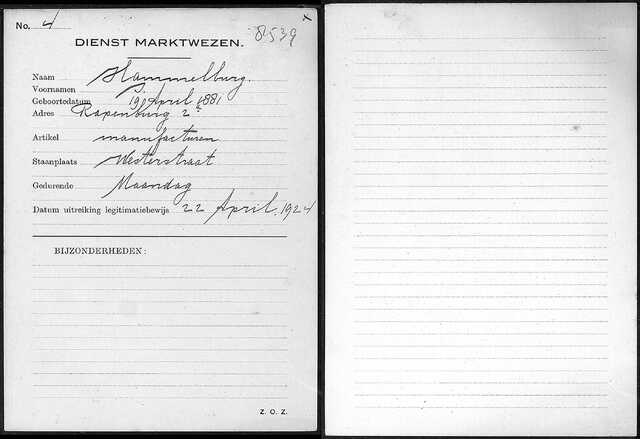 No. 4
8539
DIENST MARKTWEZEN.
Naam Hammelburg.
Voornamen J.
Geboortedatum 19 April 1881
Adres Rapenburg 2
Artikel manufacturen
Staanplaats Westerstraat
Gedurende Maandag
Datum uitreiking legitimatiebewijs 22 April 1924
BIJZONDERHEDEN:
Z. O. Z.